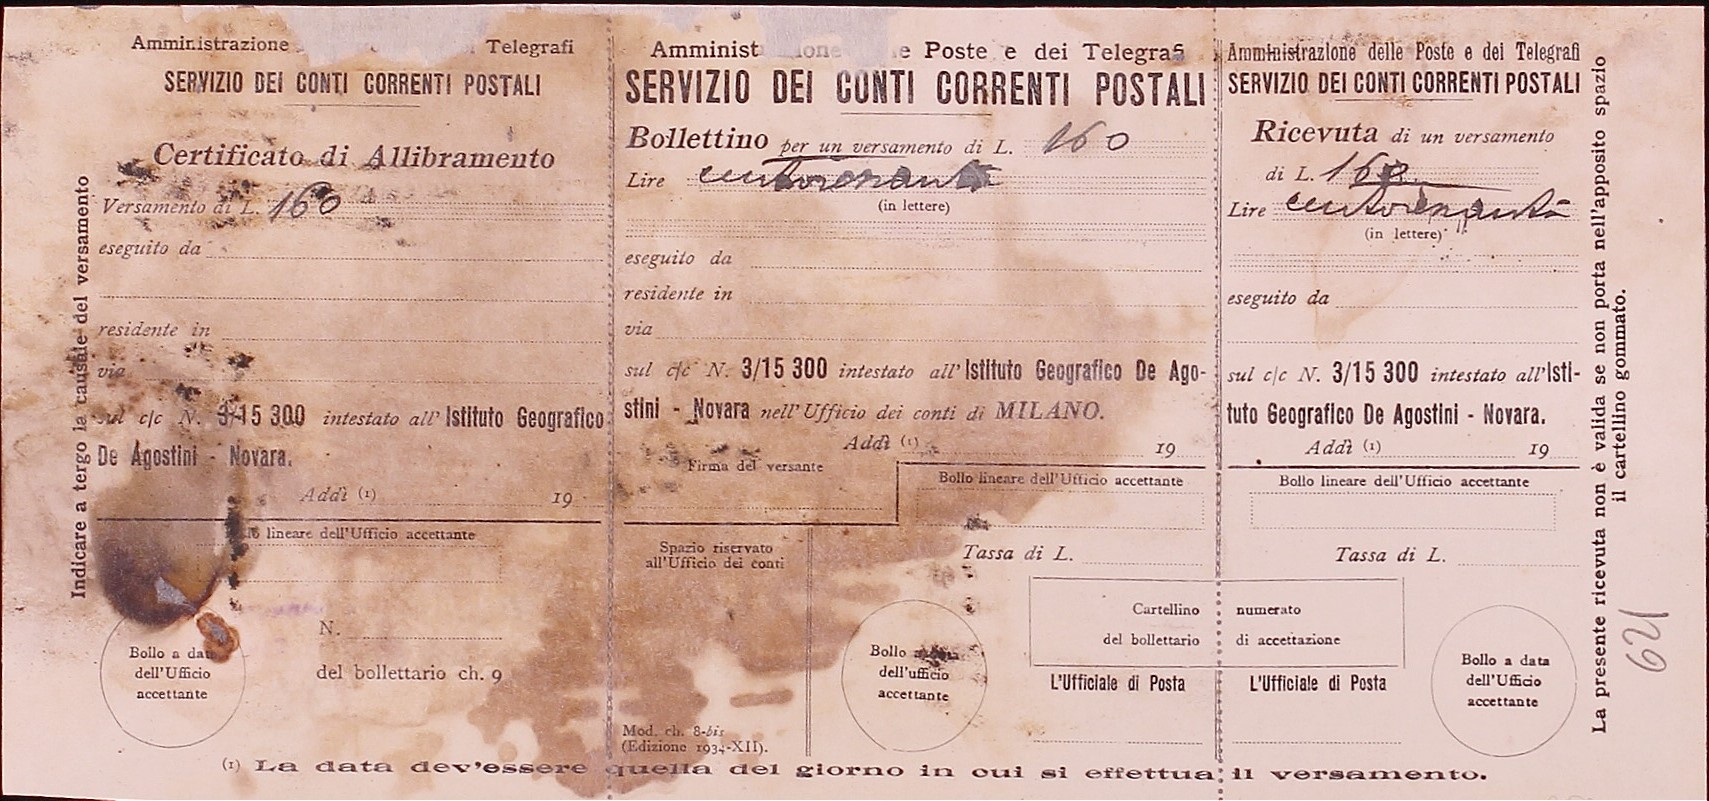 Indicare a tergo la causale del versamento
Amministrazione Telegrafi
SERVIZIO DEI CONTI CORRENTI POSTALI
Certificato di Allibramento
Versamento di L. 160
eseguito da
residente in
via
sul c/c N. 3/15 300 intestato all' Istituto Geografico
De Agostini - Novara.
Addì (1) 19
lineare dell'Ufficio accettante
N.
del bollettario ch. 9
Bollo a data
dell'Ufficio
accettante
Amminist ione e Poste e dei Telegrafi
SERVIZIO DEI CONTI CORRENTI POSTALI
Bollettino per un versamento di L. 160
Lire centosessanta
(in lettere)
eseguito da
residente in
via
sul c/c N. 3/15 300 intestato all' Istituto Geografico De Ago-
stini - Novara nell'Ufficio dei conti di MILANO.
Addì (1) 19
Firma del versante
Bollo lineare dell'Ufficio accettante
Spazio riservato
all'Ufficio dei conti
Tassa di L.
Cartellino
del bollettario
Bollo
dell'ufficio
accettante
L'Ufficiale di Posta
Mod. ch. 8-bis
(Edizione 1934-XII).
Amministrazione delle Poste e dei Telegrafi
SERVIZIO DEI CONTI CORRENTI POSTALI
Ricevuta di un versamento
di L. 160
Lire centosessanta
(in lettere)
eseguito da
sul c/c N. 3/15 300 intestato all'Isti-
tuto Geografico De Agostini - Novara.
Addì (1) 19
Bollo lineare dell'Ufficio accettante
Tassa di L.
numerato
di accettazione
L'Ufficiale di Posta
Bollo a data
dell'Ufficio
accettante
La presente ricevuta non è valida se non porta nell'apposito spazio
il cartellino gommato.
621
(1) La data dev'essere quella del giorno in cui si effettua il versamento.